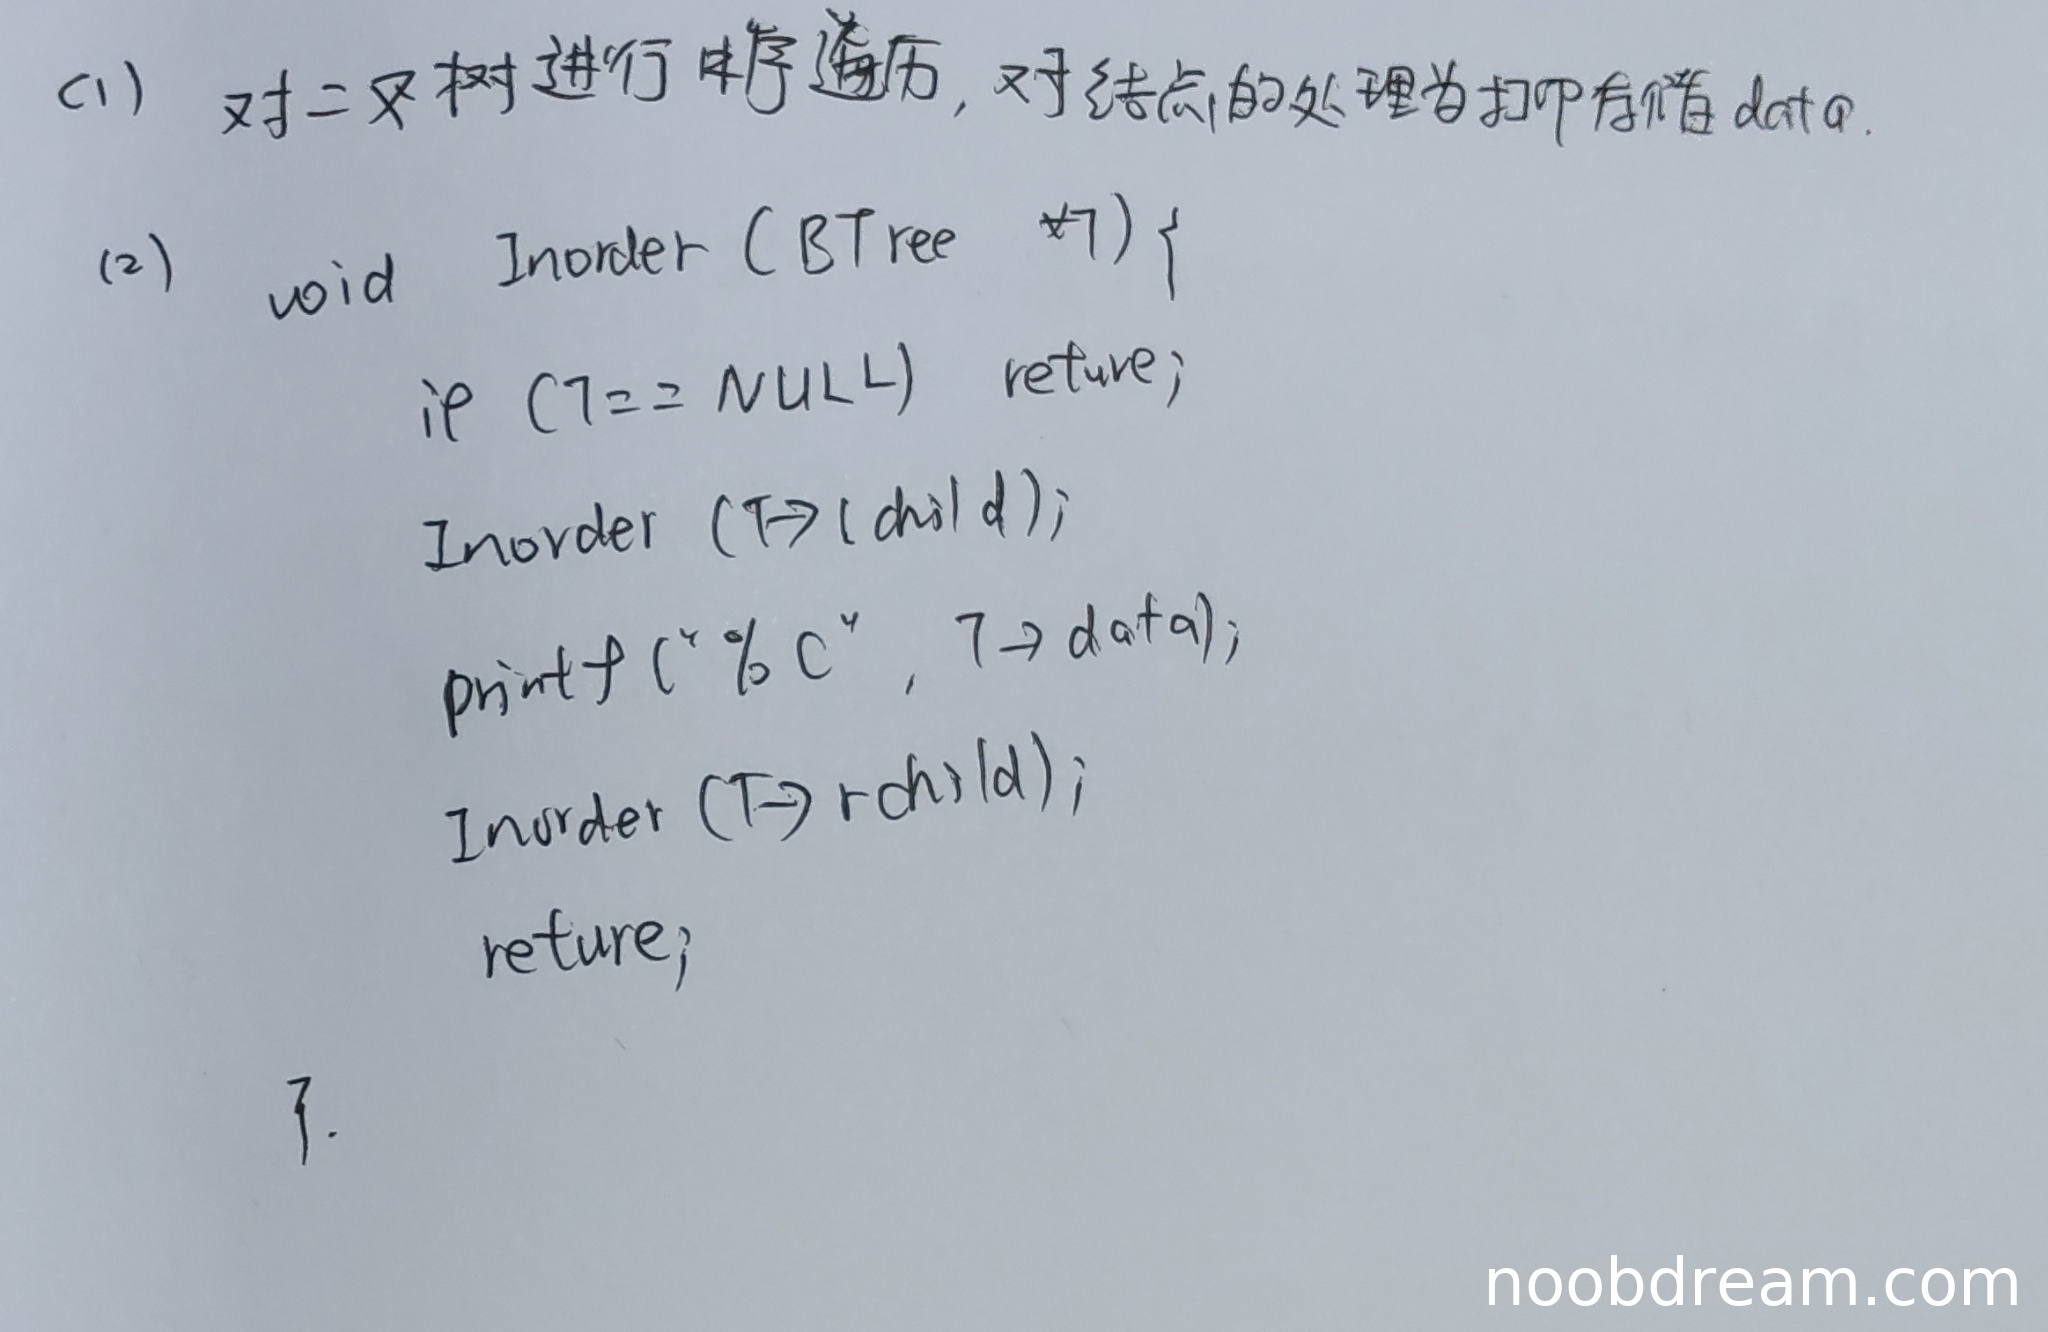 (1) 对二叉树进行中序遍历, 对结点的处理为打印存储值 data.
(2) void Inorder (BTree *T) {
if (T == NULL) reture;
Inorder (T→lchild);
printf ("%c", T→data);
Inorder (T→rchild);
reture;
}.
noobdream.com